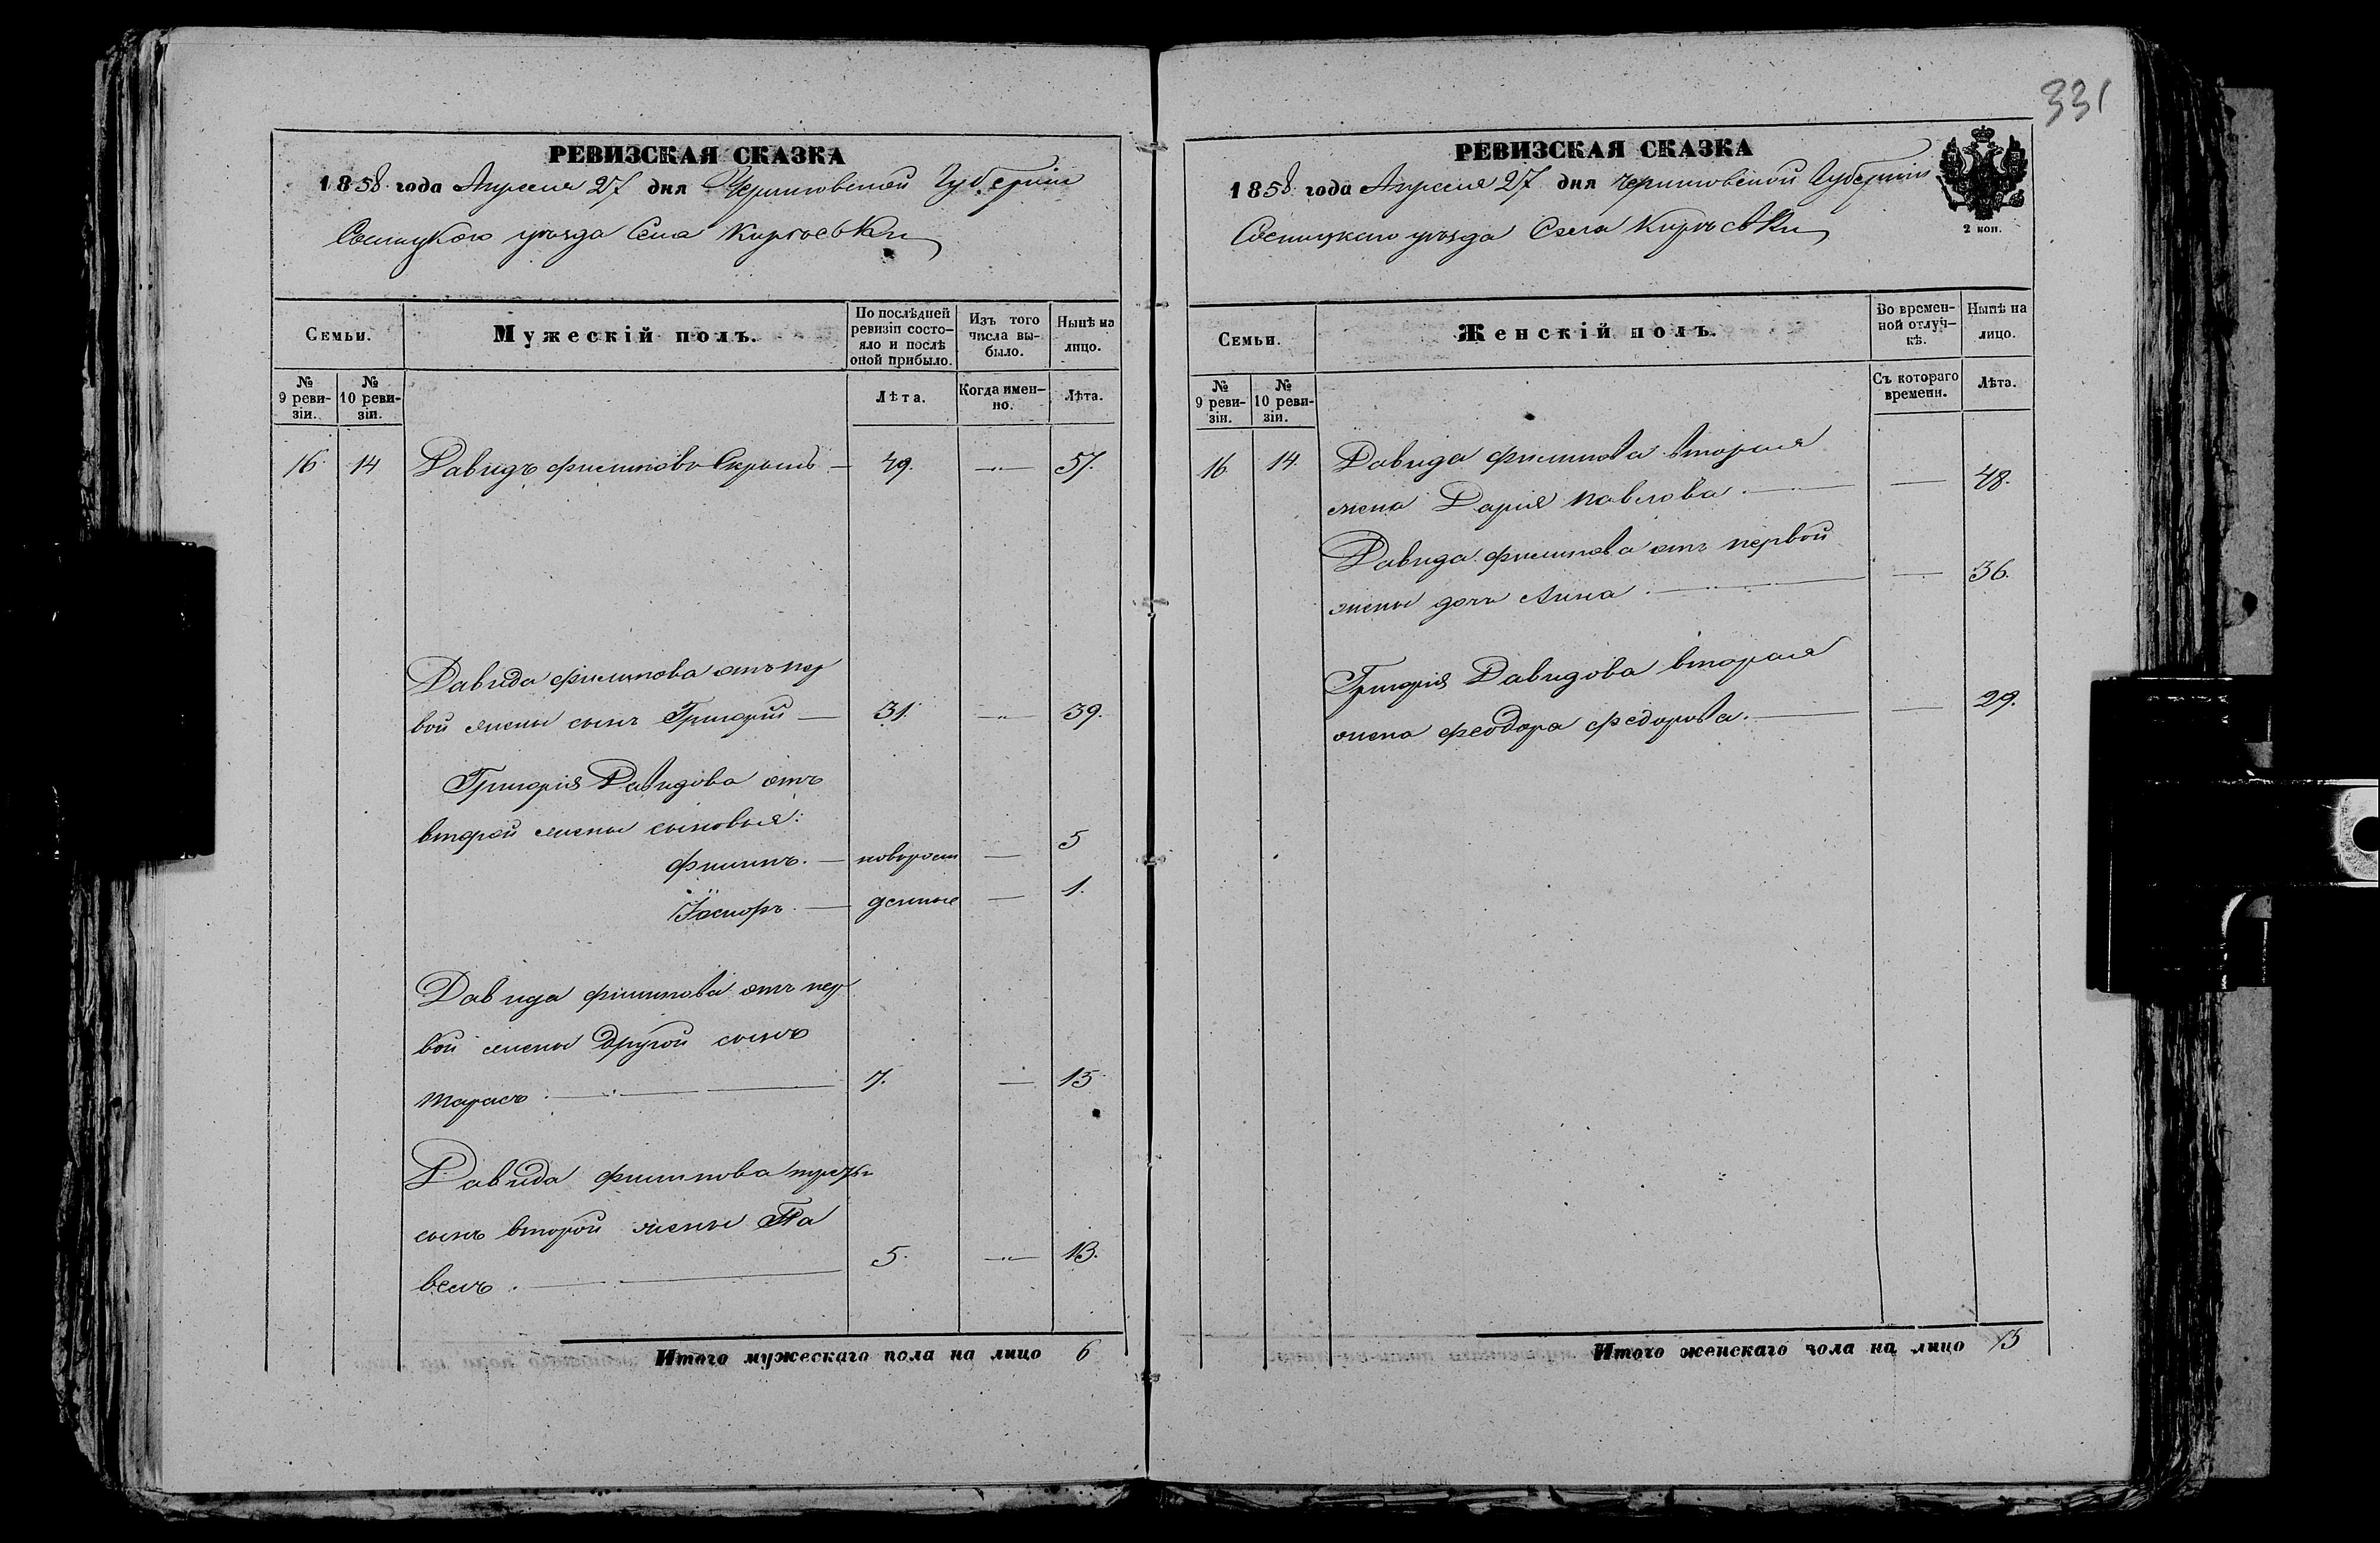 331
РЕВИЗСКАЯ СКАЗКА
1858 года Апреля 27 дня Черниговской Губернии
Сосницкого уезда Села Киріевки
Семьи.
Мужескій полъ.
По послѣдней ревизіи состо-
яло и послѣ оной прибыло.
Изъ того числа вы-
было.
Нынѣ на лицо.
№ 9 реви-
зіи.
№ 10 реви-
зіи.
Лѣта.
Когда имен-
но.
Лѣта.
16. 14 Давидъ Филиповъ — 49. — 57.
Давида Филипова отъ пер
вой жены сынъ Григорій — 31. — 39.
Григорія Давидова отъ
второй жены сыновья:
Филипъ. — новорож — 5
— денные — 1.
Давида Филипова отъ пер
вой жены другой сынъ
Тарасъ. — 7. — 15
Давида Филипова
сынъ второй жены Па
велъ. — 5. — 13.
Итого мужескаго пола на лицо 6
РЕВИЗСКАЯ СКАЗКА
1858 года Апреля 27 дня Черниговской Губернии
Сосницкаго уезда Села Киріевки
2 коп.
Семьи.
Женскій полъ.
Во времен-
ной отлуч-
кѣ.
Нынѣ на лицо.
№ 9 реви-
зіи.
№ 10 реви-
зіи.
Съ котораго времени.
Лѣта.
16 14. Давида Филипова вторая
жена Дария Павлова. — — 48.
Давида Филипова отъ первой
жены дочь Анна. — — 36.
Григория Давидова вторая
жена Феодора Федорова. — — 29.
Итого женскаго пола на лицо 3